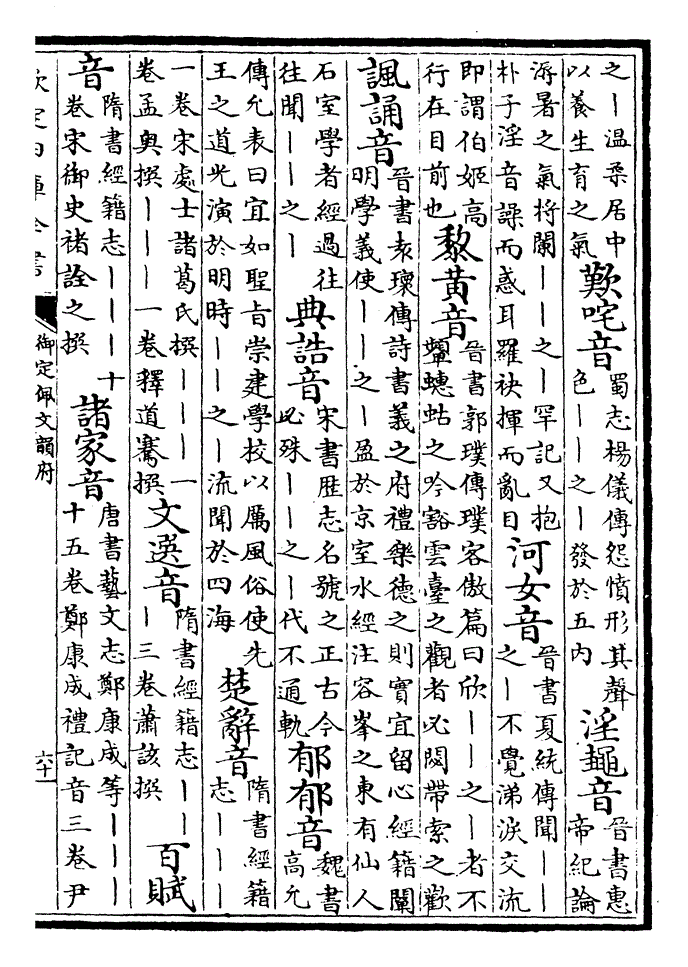 之丨温柔居中
以養生育之氣
歎咤音
蜀志楊儀傳怨憤形其聲
色丨丨之丨發於五内
淫䵷音
晉書惠
帝紀論
溽暑之氣將闌丨丨之丨罕記又抱
朴子淫音譟而惑耳羅袂揮而亂目
河女音
晉書夏統傳聞丨丨
之丨不覺涕淚交流
即謂伯姬高
行在目前也
黎黄音
晉書郭璞傳璞客傲篇曰欣丨丨之丨者不
顰蟪蛄之吟豁雲臺之觀者必閟帶索之歡
諷誦音
晉書袁瓌傳詩書義之府禮樂德之則實宜留心經籍闡
明學義使丨丨之丨盈於京室水經注容峯之東有仙人
石室學者經過往
往聞丨丨之丨
典誥音
宋書歴志名號之正古今
必殊丨丨之丨代不通軌
郁郁音
魏書
高允
傳允表曰宜如聖旨崇建學校以厲風俗使先
王之道光演於明時丨丨之丨流聞於四海
楚辭音
隋書經籍
志丨丨丨
一卷宋處士諸葛氏撰丨丨丨一
卷孟奥撰丨丨丨一卷釋道騫撰
文選音
隋書經籍志丨丨
丨三卷蕭該撰
百賦
音
隋書經籍志丨丨丨十
卷宋御史褚詮之撰
諸家音
唐書藝文志鄭康成等丨丨丨
十五卷鄭康成禮記音三卷尹
欽定四庫全書
御定佩文韻府